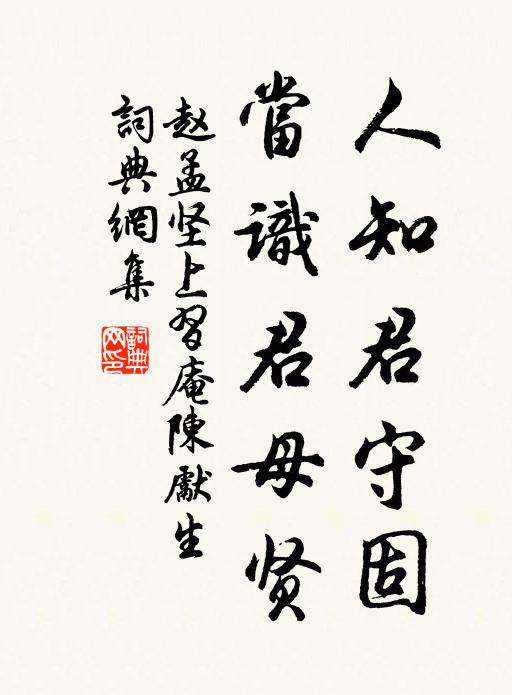 人知君守固
當識君母贤
赵孟坚上習庵陳獻生
詞典網集
詞典網印